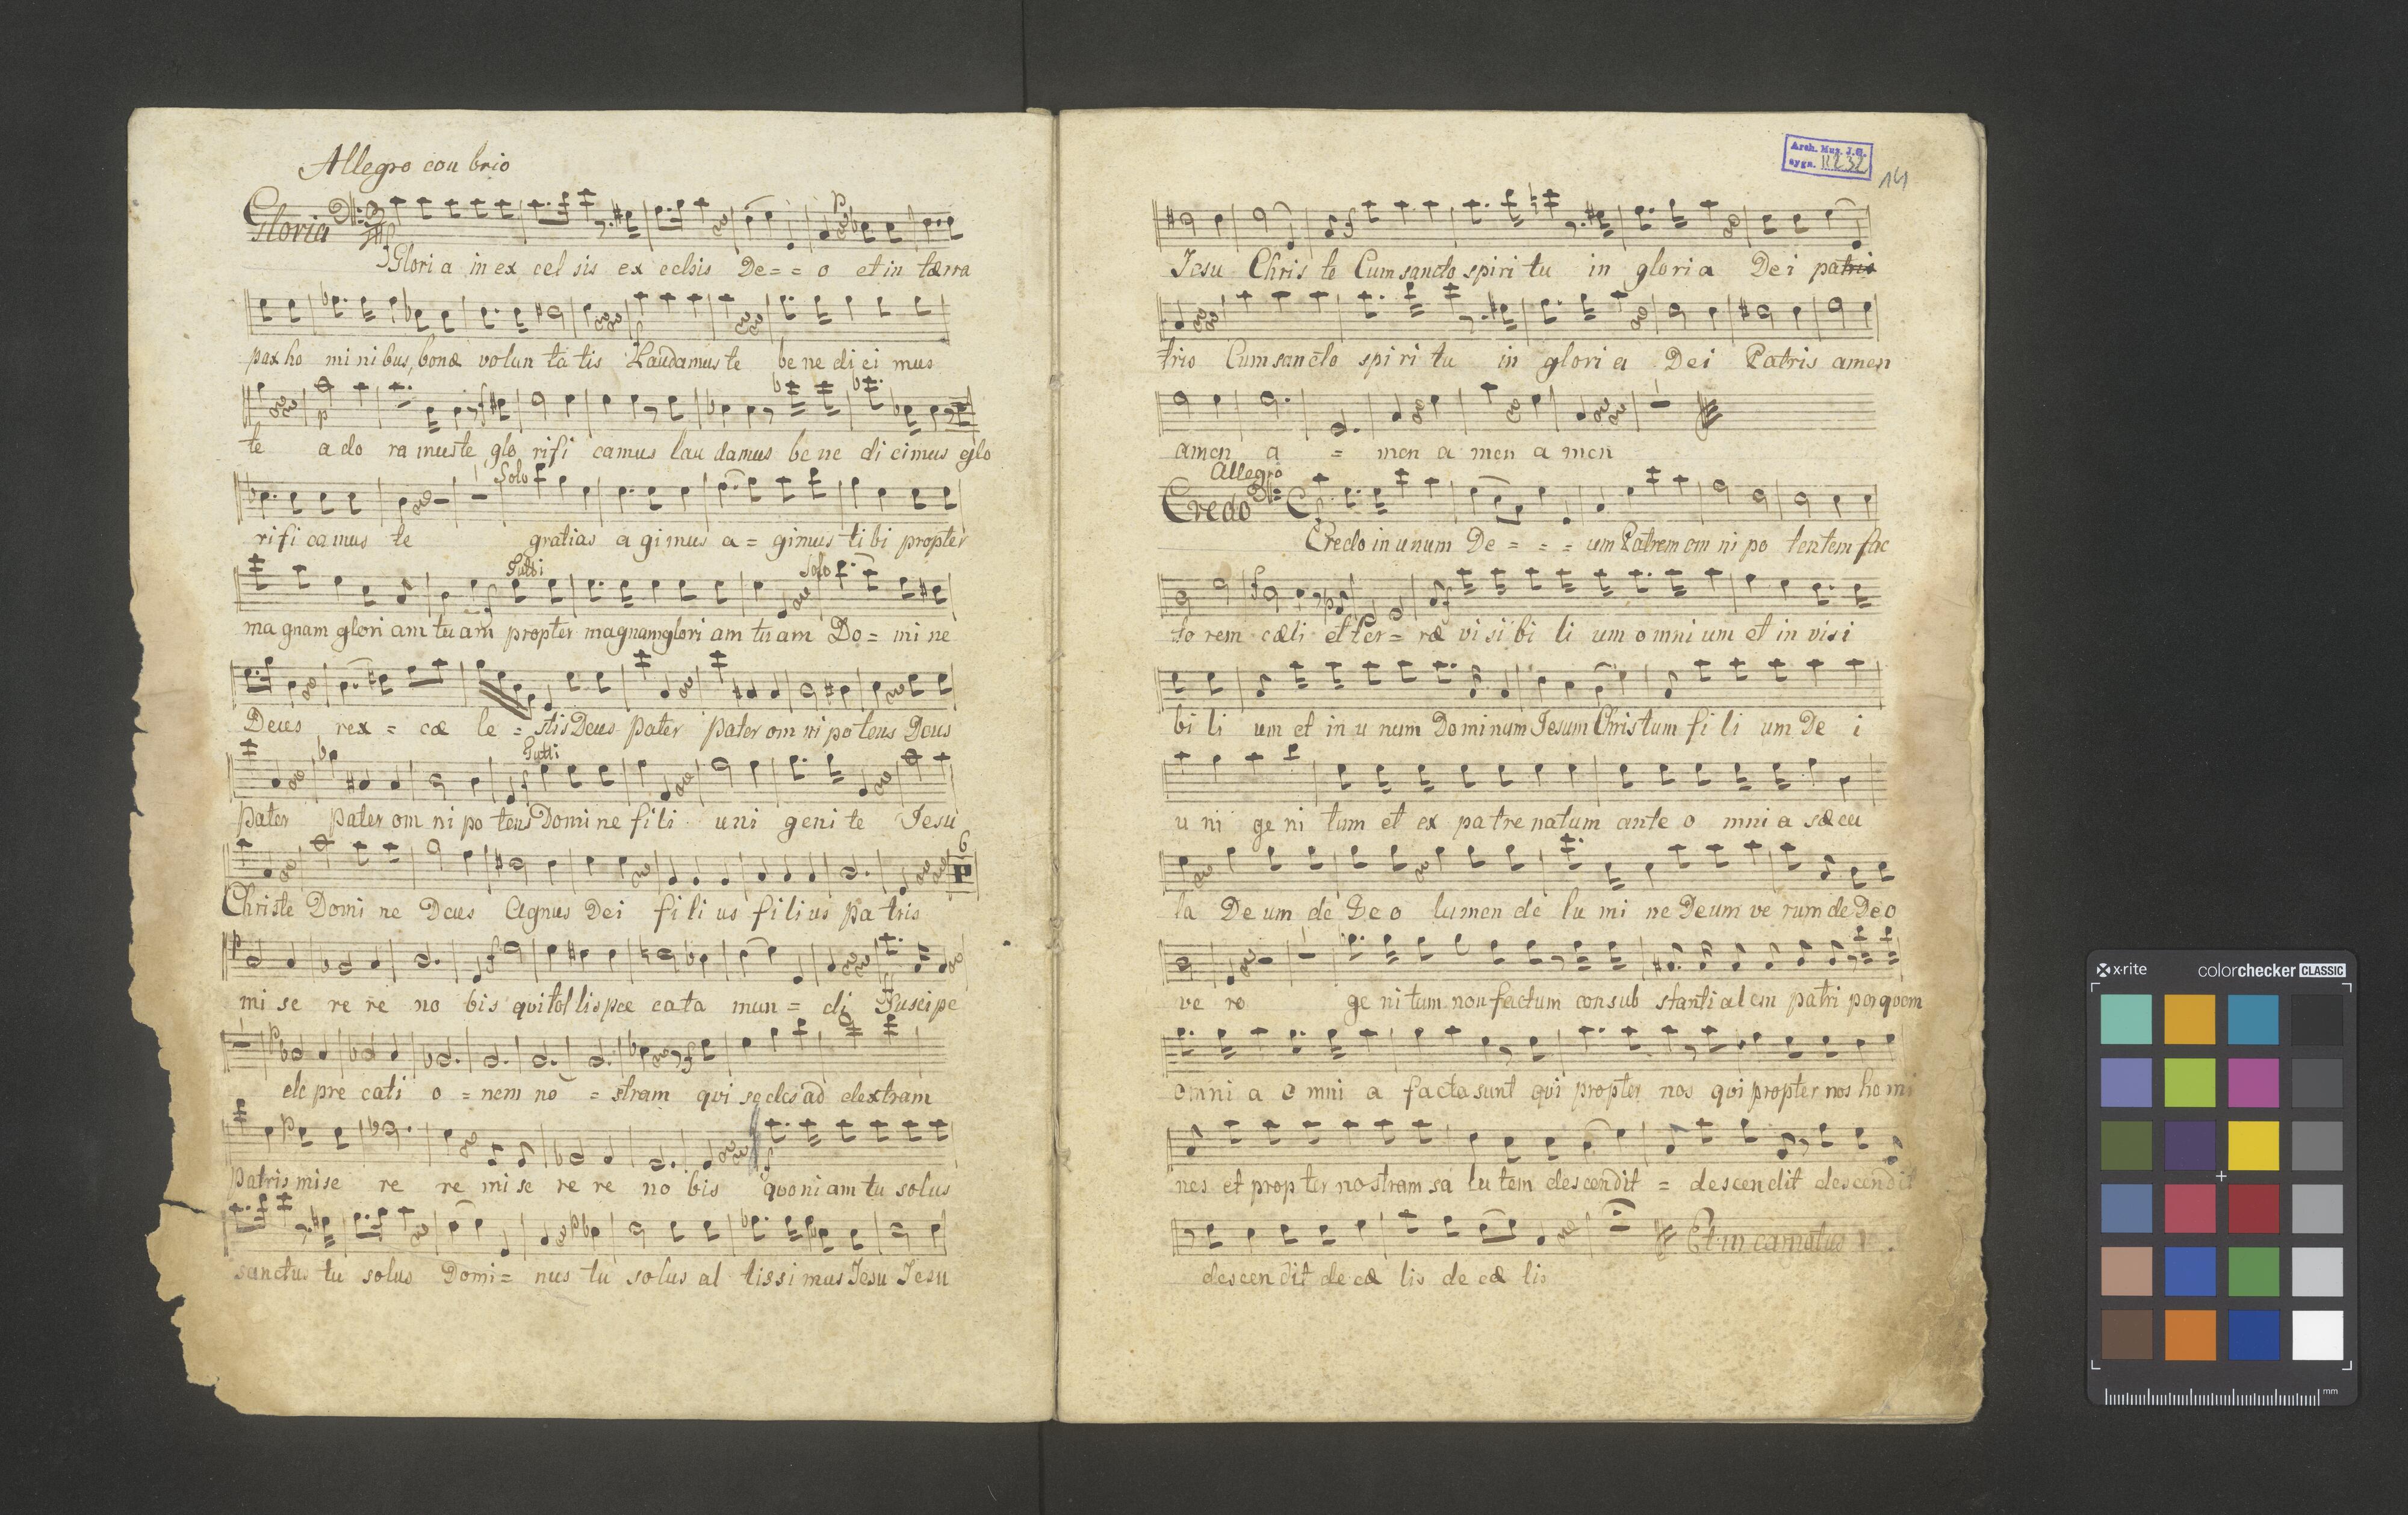 Allegro con brio
Gloria
Gloria in ex cel sis ex celsis De = = o et in tærra
pax ho mi ni bus, bonæ volun ta tis Laudamus te be ne di ci mus
te a do ra mus te glo rifi camus lau damus be ne di cimus glo
Solo
rifi camus te gratias a gimus a = gimus tibi propter
Tutti Solo
ma gnam glori am tu am propter magnam glori am tu am Do = mi ne
Deus rex = cæ le = stis Deus pater pater om ni po tens Deus
Tutti
pater pater om ni po tens Domi ne fi li uni geni te Jesu
6
Christe Domi ne Deus Agnus Dei fi li us fi li us pa tris
mi se re re no bis qui tol lis pec cata mun = di Suscipe
de pre cati o = nem no = stram qui sedes ad dextram
patris mise re re mi se re re no bis quoni am tu solus
sanctus tu solus Domi = nus tu solus al tissi mus Jesu Jesu
Arch. Muz. J.G.
sygn. II 232
14
Jesu Chris te Cum sancto spiri tu in gloria Dei patris
tris Cum sancto spi ri tu in glori a Dei Patris amen
amen a = men a men a men
Allegro
Credo
Credo in unum De = = = um Patrem om ni po tentem fac
to rem cæli et ter = ræ vi si bi li um o mni um et in visi
bi li um et in u num Dominum Jesum Christum fi li um De i
u ni ge ni tum et ex patre natum ante o mni a sæcu
la De um de De o lumen de lu mi ne Deum ve rum de Deo
ve ro ge ni tum non factum con sub stanti alem patri per quem
omni a o mni a facta sunt qui propter nos qui propter nos ho mi
nes et prop ter nostram sa lu tem descendit = descendit descendit
Et in carnatus
descen dit de cæ lis de cæ lis
x-rite
colorchecker CLASSIC
mm